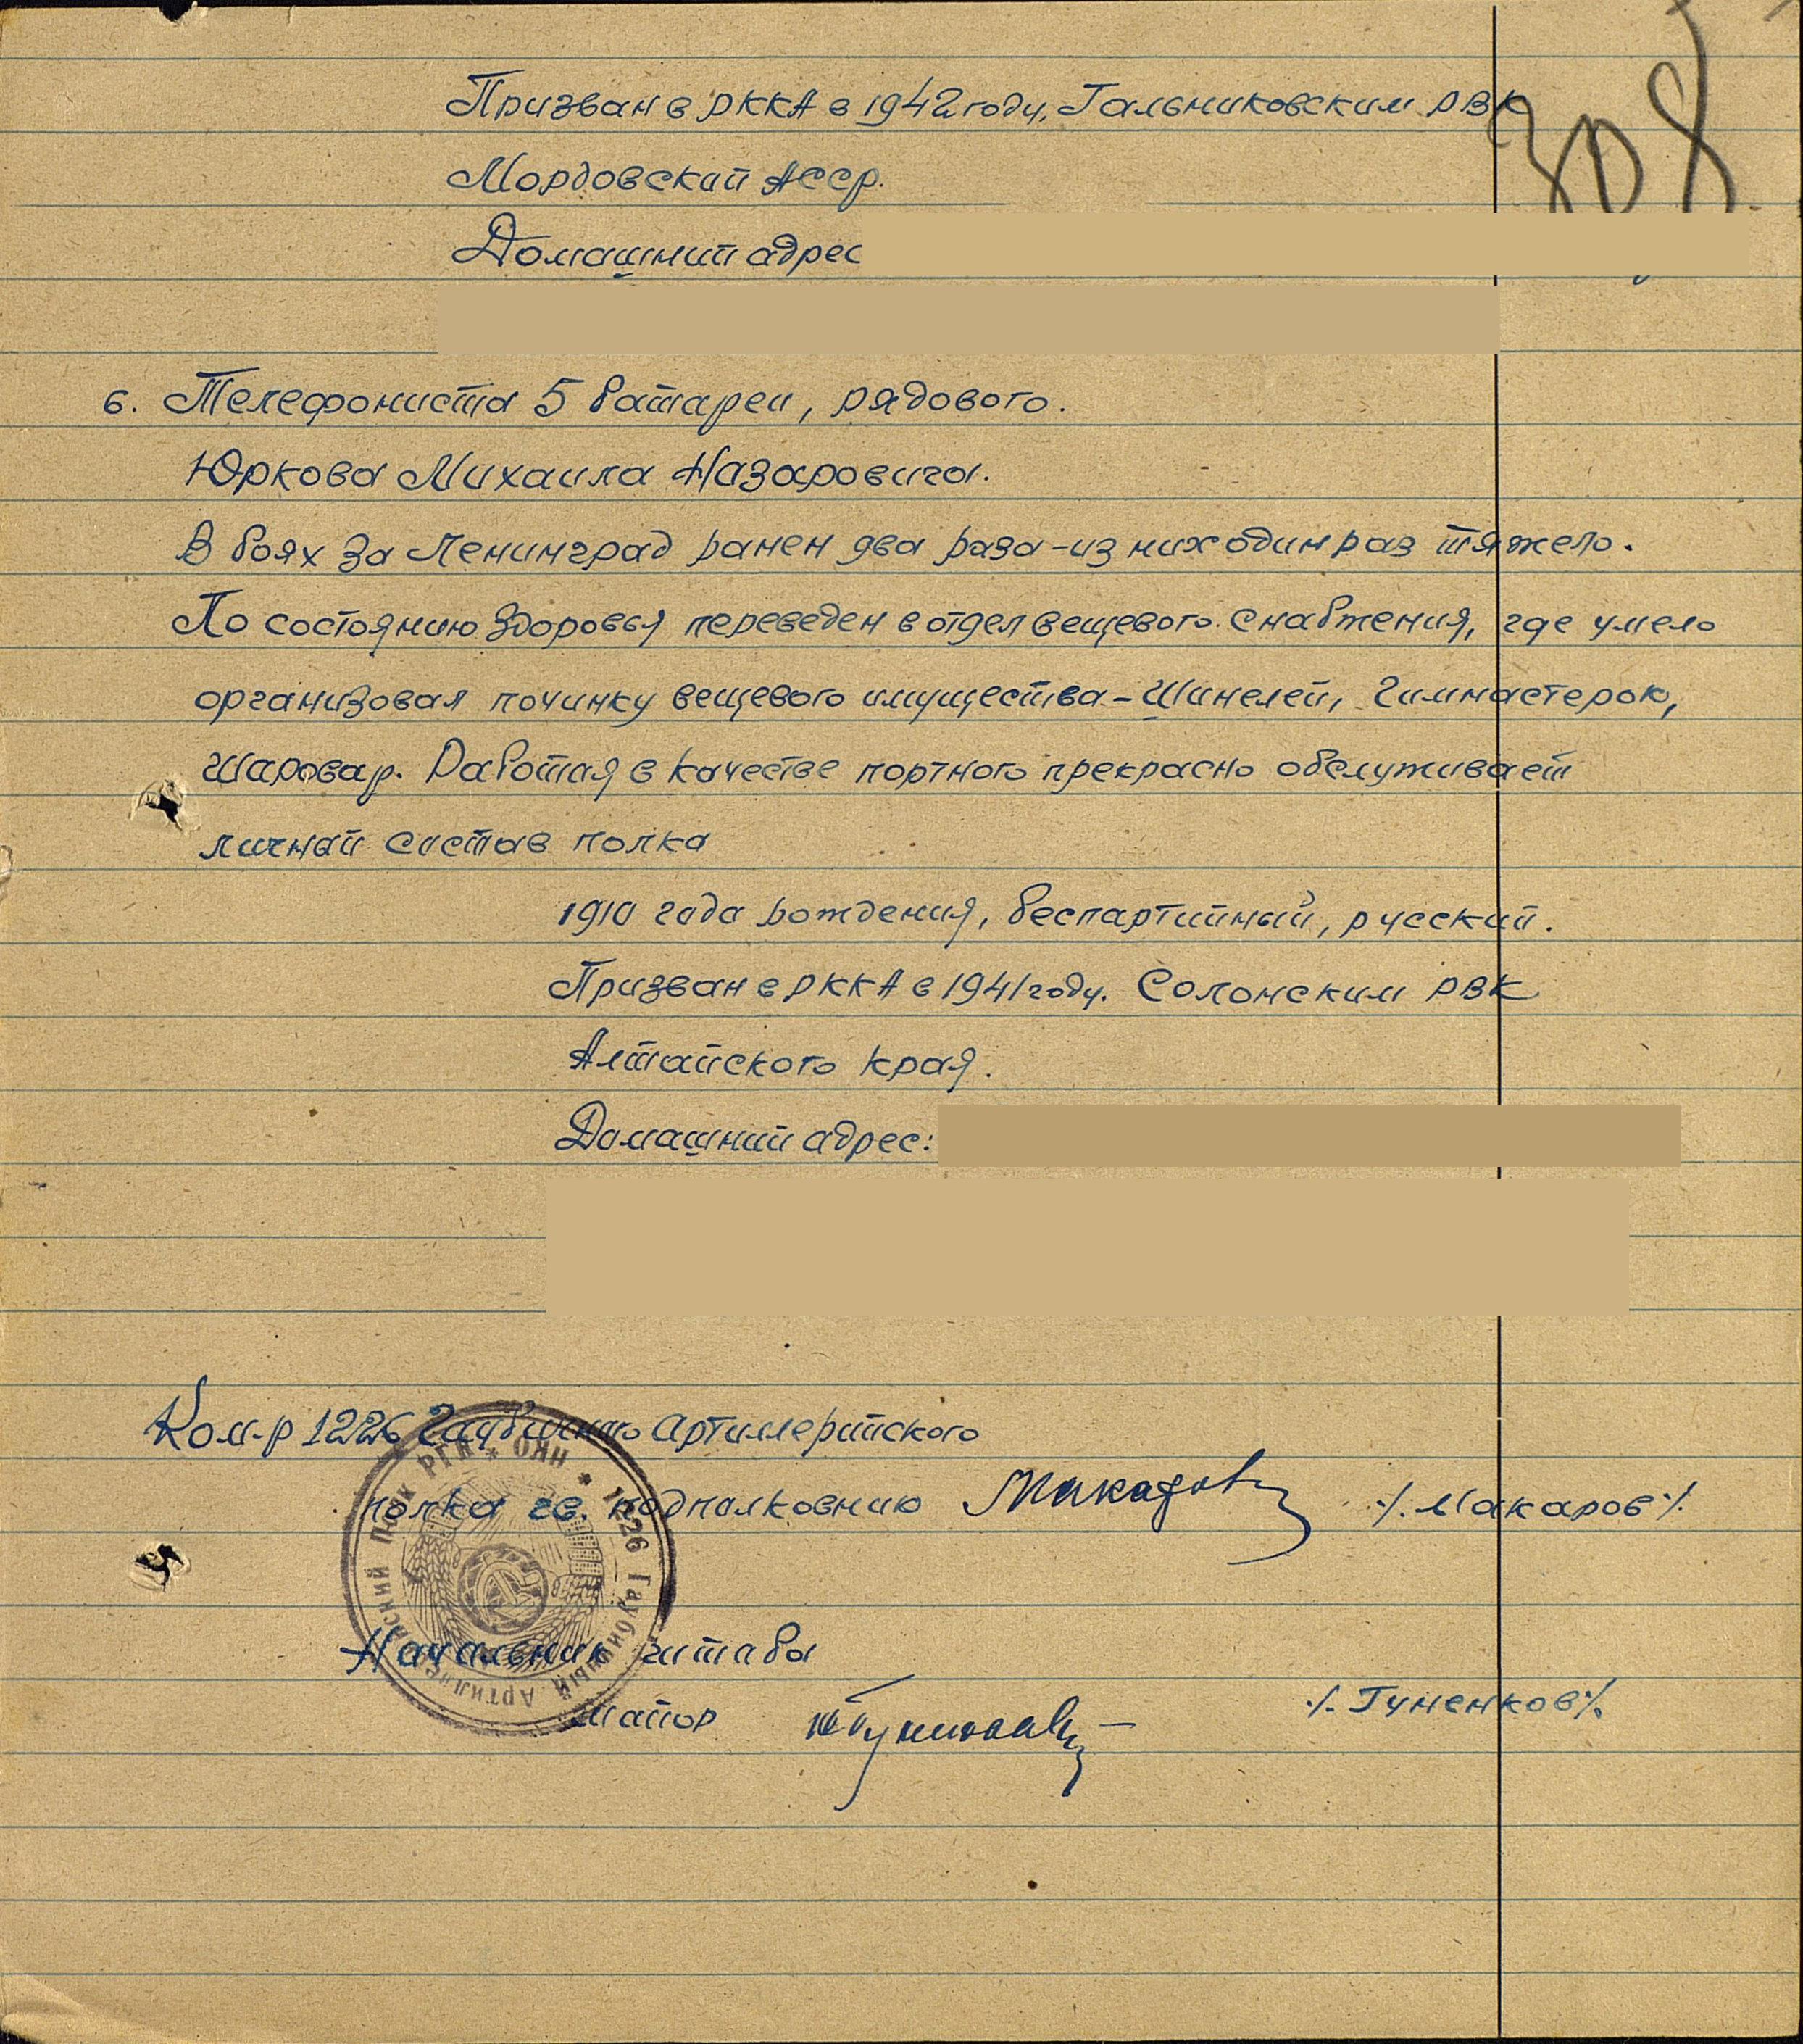 308
Призван в РККА в 1942 году, Тальниковским РВК
Мордовский АССР.
Домашний адрес
6. Телефониста 5 батареи, рядового.
Юркова Михаила Назаровича.
В боях за Ленинград ранен два раза - из них один раз тяжело.
По состоянию здоровья переведен в отдел вещевого снабжения, где умело
организовал починку вещевого имущества - Шинелей, Гимнастерок,
Шаровар. Работая в качестве портного прекрасно обслуживает
личный состав полка
1910 года рождения, беспартийный, русский.
Призван в РККА в 1941 году. Солонским РВК
Алтайского края.
Домашний адрес:
Ком-р 1226 Гаубичного Артиллерийского
полка гв. подполковник Макаров /. Макаров /.
Начальник штаба
майор /. Гуненков /.
1226 Гаубичный Артиллерийский Полк РГК * ОКН *